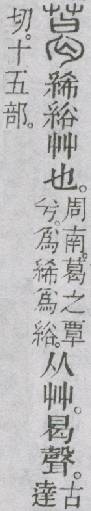 葛絺綌艸也。周南。葛之覃兮。爲絺爲綌。从艸。曷聲。古達
切。十五部。